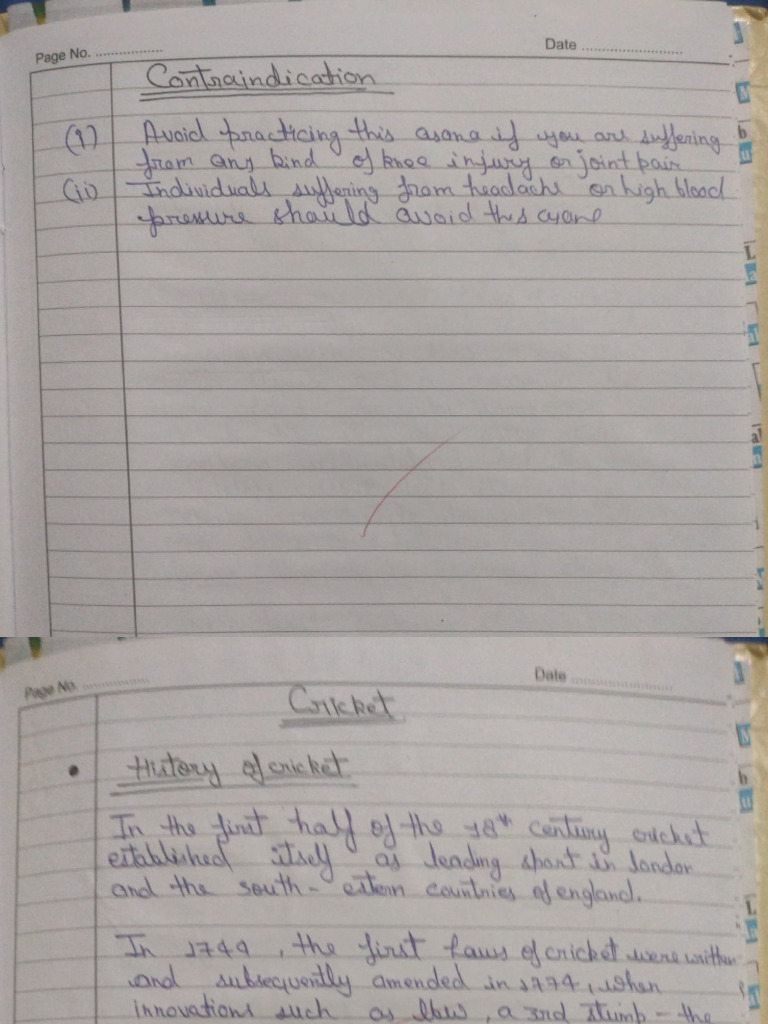 Page No. ................
Date ........................
Contraindication
(i) Avoid practicing this asana if you are suffering
from any kind of knee injury or joint pair
(ii) Individuals suffering from headache or high blood
pressure should avoid this asana
Page No. ................
Date ........................
Cricket
• History of cricket
In the first half of the 18th century cricket
established itself as leading sport in london
and the south- estern countries of england.
In 1744, the first laws of cricket were written
and subsequently amended in 1774, when
innovations such as lbw, a 3rd stump - the